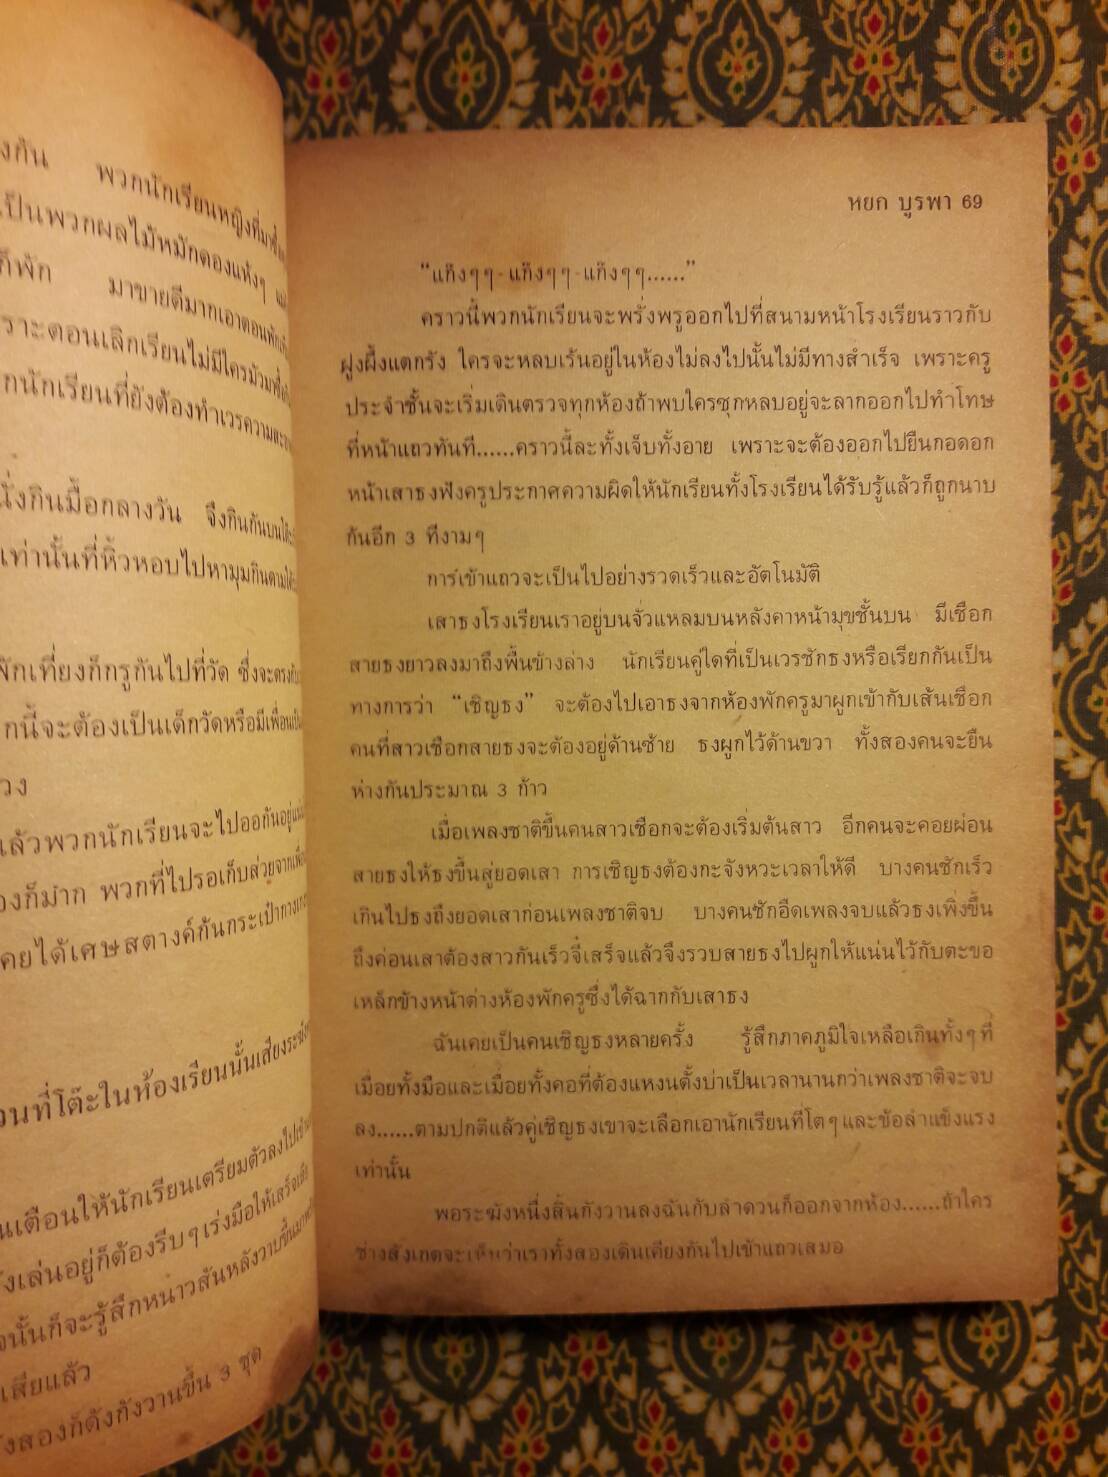 งกัน พวกนักเรียนหญิงที่มาซื้อ
เป็นพวกผลไม้หมักดองแห้งๆ
ก็พัก มาขายดีมากเอาตอนพัก
ราะตอนเลิกเรียนไม่มีใครมัวมาซื้อ
กนักเรียนที่ยังต้องทำเวรความสะอาด
นั่งกินมื้อกลางวัน จึงกินกันบนโต๊ะ
เท่านั้นที่หิ้วหอบไปหามุมกินตามใต้
พักเที่ยงก็กรูกันไปที่วัด ซึ่งจะตรงกับ
กนี้จะต้องเป็นเด็กวัดหรือมีเพื่อนเป็น
วง
แล้วพวกนักเรียนจะไปออกันอยู่
องก็มาก พวกที่ไปรอเก็บส่วยจากเพื่อน
คยได้เศษสตางค์ก้นกระเป๋ากางเกง
วนที่โต๊ะในห้องเรียนนั้นเสียงระฆัง
นเตือนให้นักเรียนเตรียมตัวลงไปเข้า
ังเล่นอยู่ก็ต้องรีบๆ เร่งมือให้เสร็จ
จนั้นก็จะรู้สึกหนาวสันหลังวาบขึ้นมา
เสียแล้ว
ังสองก็ดังกังวานขึ้น 3 ชุด
หยก บูรพา 69
“แก๊งๆๆ-แก๊งๆๆ-แก๊งๆๆ......”
คราวนี้พวกนักเรียนจะพรั่งพรูออกไปที่สนามหน้าโรงเรียนราวกับ
ฝูงผึ้งแตกรัง ใครจะหลบเร้นอยู่ในห้องไม่ลงไปนั้นไม่มีทางสำเร็จ เพราะครู
ประจำชั้นจะเริ่มเดินตรวจทุกห้องถ้าพบใครซุกหลบอยู่จะลากออกไปทำโทษ
ที่หน้าแถวทันที......คราวนี้ละทั้งเจ็บทั้งอาย เพราะจะต้องออกไปยืนกอดอก
หน้าเสาธงฟังครูประกาศความผิดให้นักเรียนทั้งโรงเรียนได้รับรู้แล้วก็ถูกนาบ
กันอีก 3 ทีงามๆ
การเข้าแถวจะเป็นไปอย่างรวดเร็วและอัตโนมัติ
เสาธงโรงเรียนเราอยู่บนจั่วแหลมบนหลังคาหน้ามุขชั้นบน มีเชือก
สายธงยาวลงมาถึงพื้นข้างล่าง นักเรียนคู่ใดที่เป็นเวรชักธงหรือเรียกกันเป็น
ทางการว่า “เชิญธง” จะต้องไปเอาธงจากห้องพักครูมาผูกเข้ากับเส้นเชือก
คนที่สาวเชือกสายธงจะต้องอยู่ด้านซ้าย ธงผูกไว้ด้านขวา ทั้งสองคนจะยืน
ห่างกันประมาณ 3 ก้าว
เมื่อเพลงชาติขึ้นคนสาวเชือกจะต้องเริ่มต้นสาว อีกคนจะคอยผ่อน
สายธงให้ธงขึ้นสู่ยอดเสา การเชิญธงต้องกะจังหวะเวลาให้ดี บางคนชักเร็ว
เกินไปธงถึงยอดเสาก่อนเพลงชาติจบ บางคนชักอืดเพลงจบแล้วธงเพิ่งขึ้น
ถึงค่อนเสาต้องสาวกันเร็วจี๋เสร็จแล้วจึงรวบสายธงไปผูกให้แน่นไว้กับตะขอ
เหล็กข้างหน้าต่างห้องพักครูซึ่งได้ฉากกับเสาธง
ฉันเคยเป็นคนเชิญธงหลายครั้ง รู้สึกภาคภูมิใจเหลือเกินทั้งๆ ที่
เมื่อยทั้งมือและเมื่อยทั้งคอที่ต้องแหงนตั้งบ่าเป็นเวลานานกว่าเพลงชาติจะจบ
ลง......ตามปกติแล้วคู่เชิญธงเขาจะเลือกเอานักเรียนที่โตๆ และข้อลำแข็งแรง
เท่านั้น
พอระฆังหนึ่งสิ้นกังวานลงฉันกับลำดวนก็ออกจากห้อง......ถ้าใคร
ช่างสังเกตจะเห็นว่าเราทั้งสองเดินเคียงกันไปเข้าแถวเสมอ